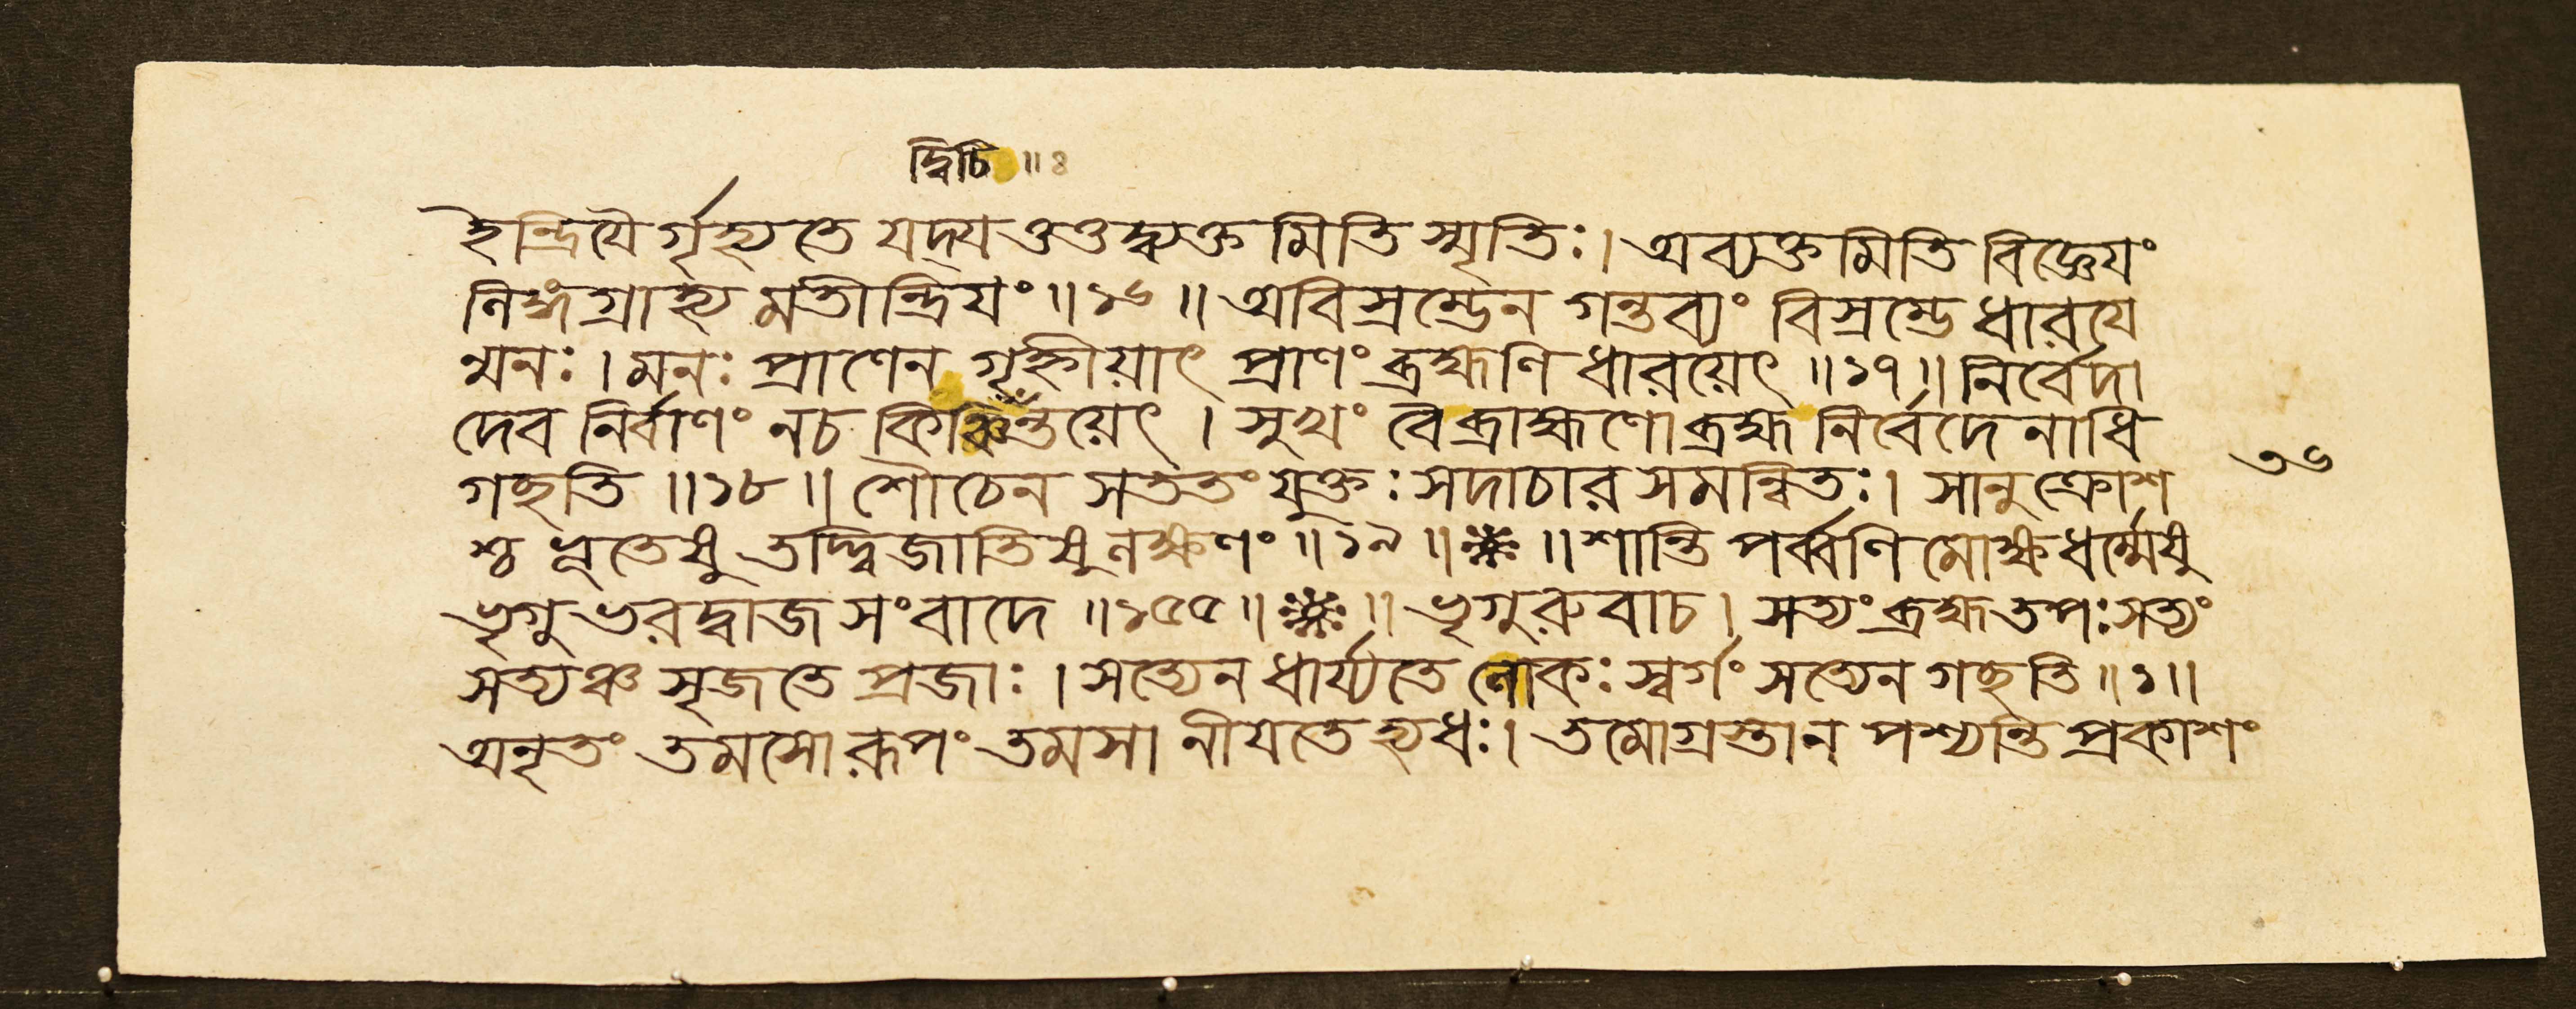 দ্বিচি ॥ ঃ
ইন্দ্রিযৈর্গৃহ্যতে যদ্যত্তত্তদ্ব্যক্তমিতি স্মৃতিঃ। অব্যক্তমিতি বিজ্ঞেযং
লিঙ্গগ্রাহ্যমতীন্দ্রিযং ॥ ১৬ ॥ অবিস্রম্ভেন গন্তব্যং বিস্রম্ভে ধারযে
ন্মনঃ । মনঃ প্রাণেন গৃহ্নীয়াৎ প্রাণং ব্রহ্মণি ধারয়েৎ ॥ ১৭ ॥ নির্বেদা
দেব নির্বাণং নচ কিঞ্চিন্তয়েৎ । সুখং বৈ ব্রাহ্মণো ব্রহ্ম নির্বেদেনাধি
গচ্ছতি ॥ ১৮ ॥ শৌচেন সততং যুক্তঃ সদাচারসমন্বিতঃ। সানুক্রোশ
৩৬
শ্চ ভূতেষু তদ্দ্বিজাতিষু লক্ষণং ॥ ১৯ ॥ ॥ শান্তিপর্ব্বণি মোক্ষধর্ম্মেষু
ভৃগুভরদ্বাজসংবাদে ॥ ১৫৫ ॥ ॥ ভৃগুরুবাচ। সত্যং ব্রহ্ম তপঃ সত্যং
সত্যঞ্চ সৃজতে প্রজাঃ । সত্যেন ধার্য্যতে লোকঃ স্বর্গং সত্যেন গচ্ছতি ॥ ১ ॥
অনৃতং তমসো রূপং তমসা নীযতে হ্যধঃ। তমোগ্রস্তা ন পশ্যন্তি প্রকাশং